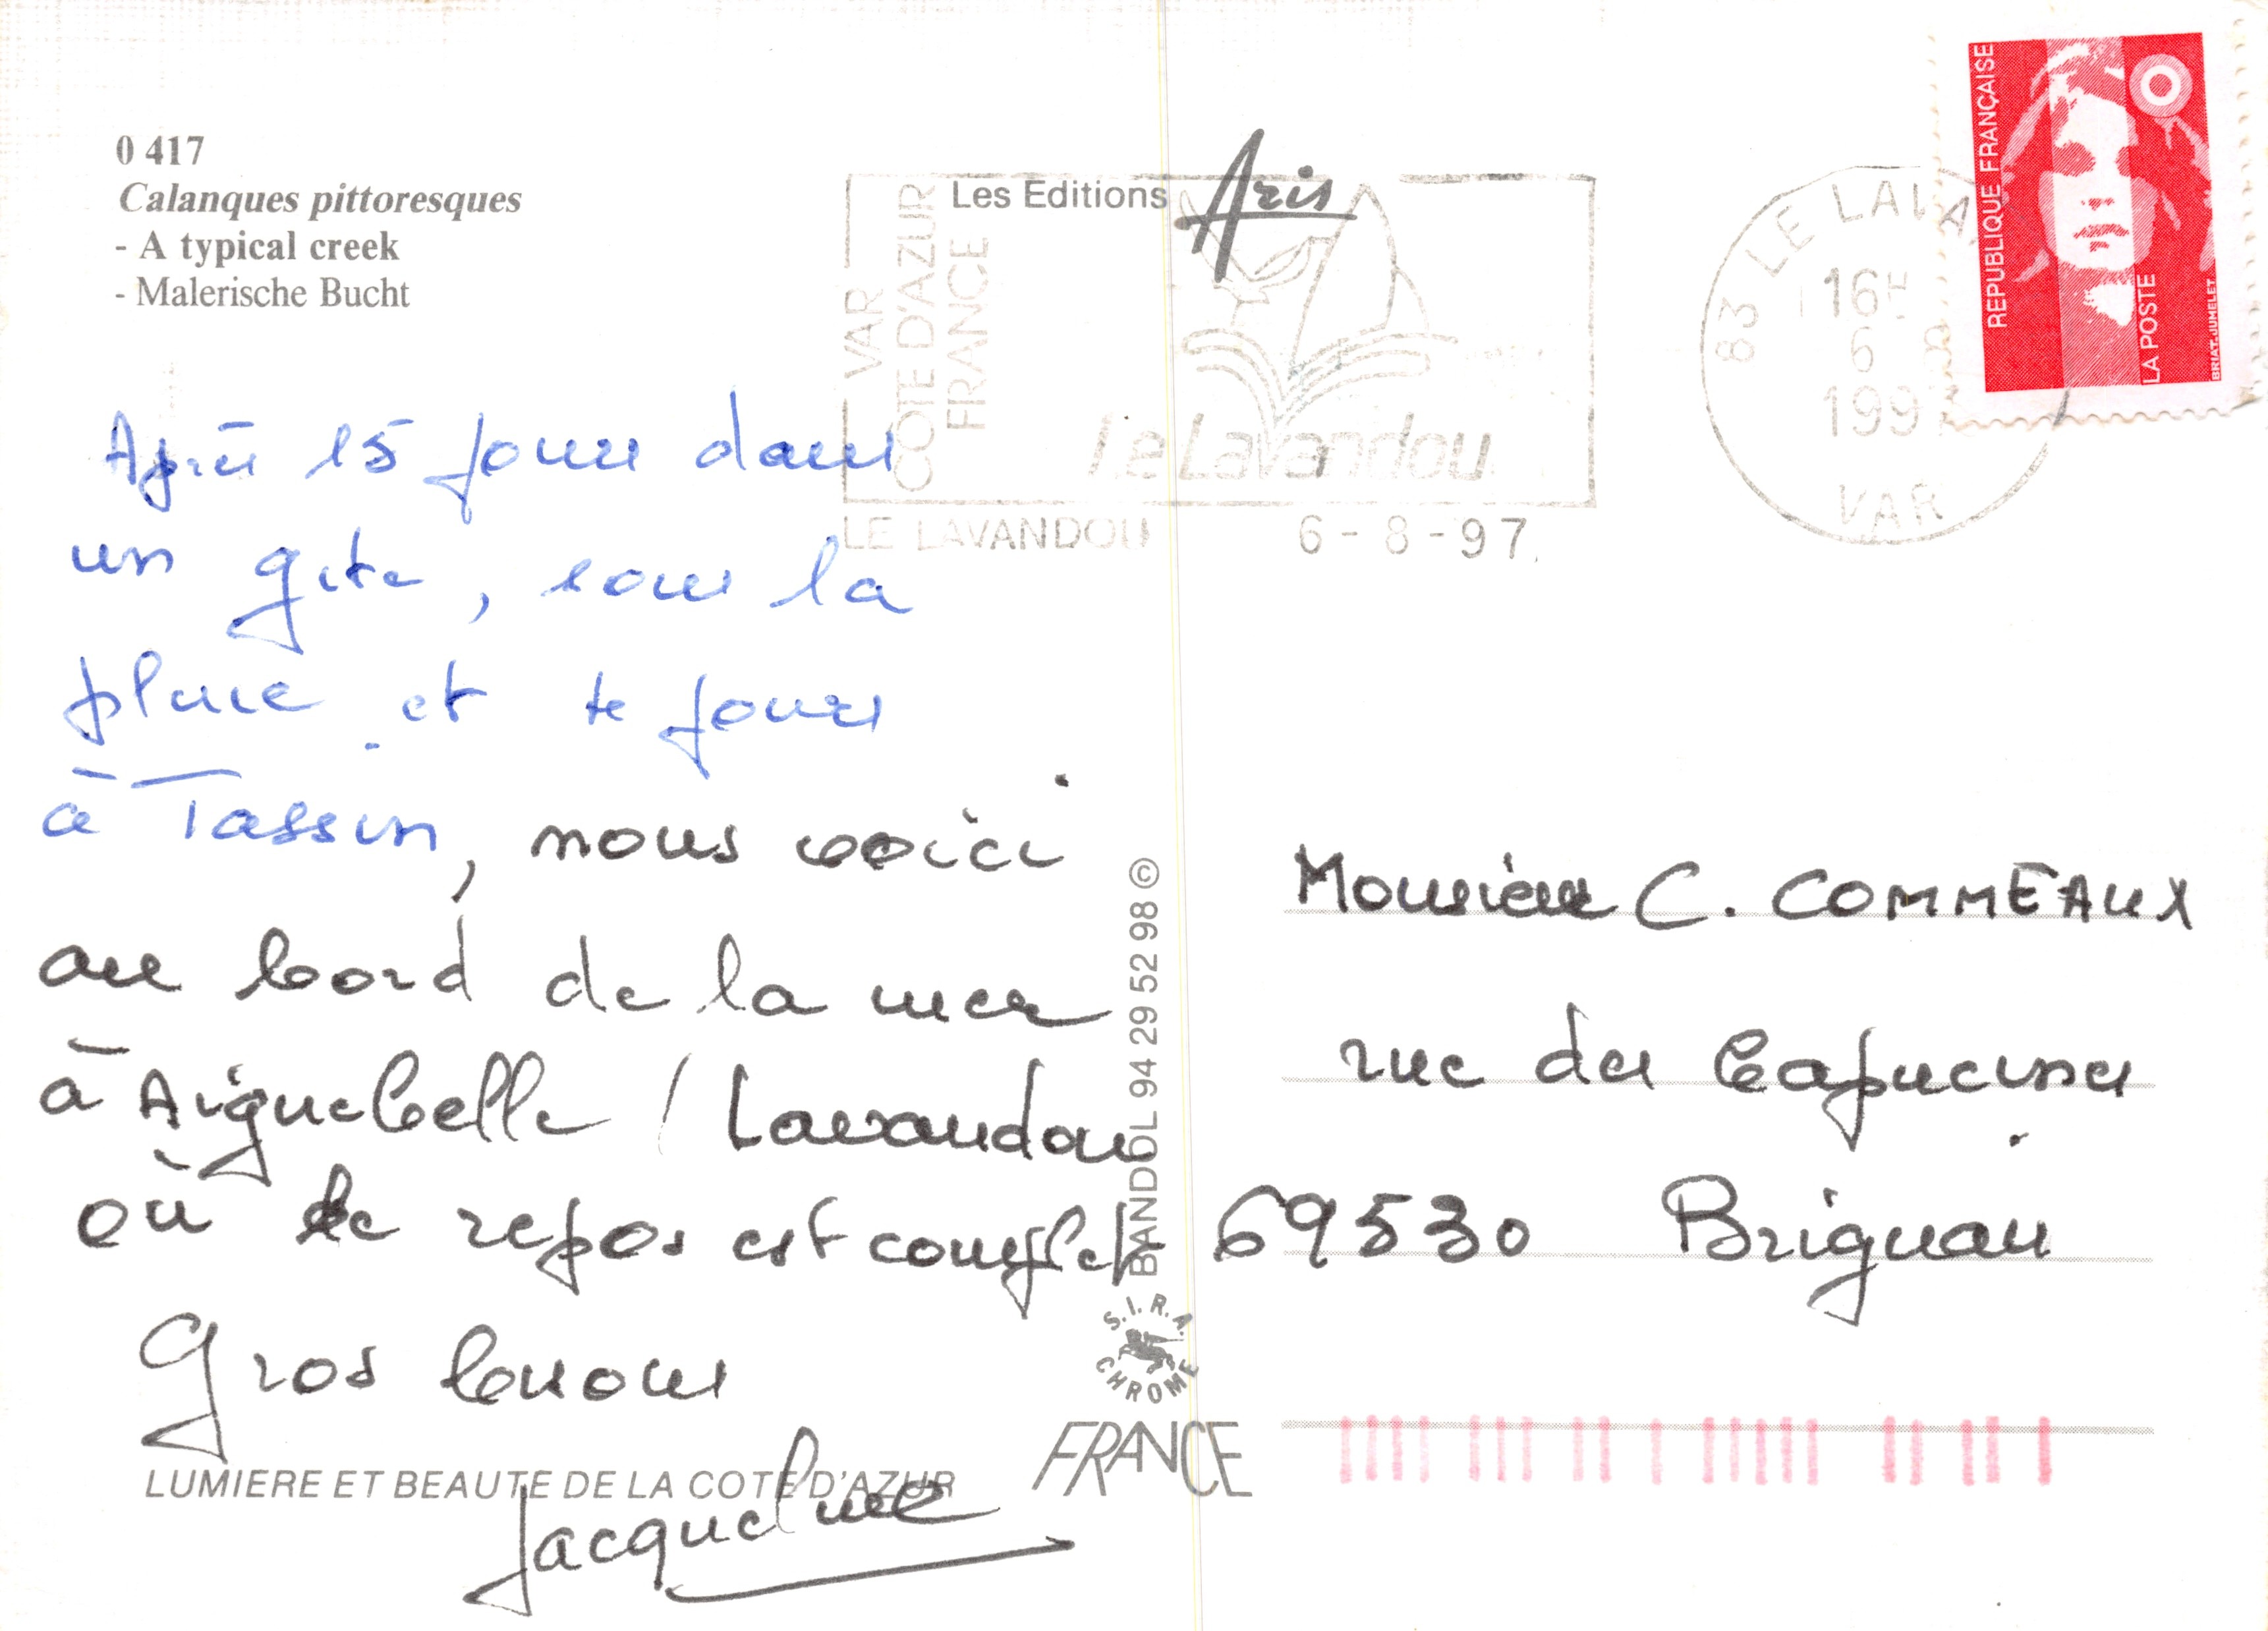 0 417
Calanques pittoresques
- A typical creek
- Malerische Bucht
Les Editions Aris
VAR
COTE D'AZUR
FRANCE
Le Lavandou
LE LAVANDOU 6-8-97
83 LE LAVA
16H
6 8
1997
VAR
REPUBLIQUE FRANÇAISE
LA POSTE
BRIAT.JUMELET
Après 15 jours dans
un gite, sous la
pluie et jours
à Tassin, nous voici
au bord de la mer
à Aiguebelle / Lavandou
où le repos est complet
Gros bisous
Jacqueline
LUMIERE ET BEAUTE DE LA COTE D'AZUR
BANDOL 94 29 52 98 ©
S.I.R.A.
CHROME
FRANCE
Monsieur C. COMMEAUX
rue des Capucines
69530 Brignais